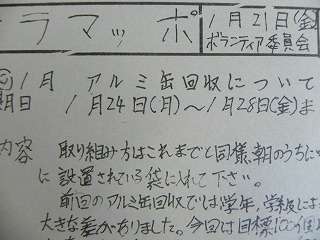 ラマッポ
1月21日(金)
ボランティア委員会
◎1月 アルミ缶回収について
期日 1月24日(月)～1月28日(金)ま
内容 取り組み方はこれまでと同様、朝のうちに
に設置されている袋に入れて下さい。
前回のアルミ缶回収では学年、学級によ
大きな差がありました。今回は目標100個